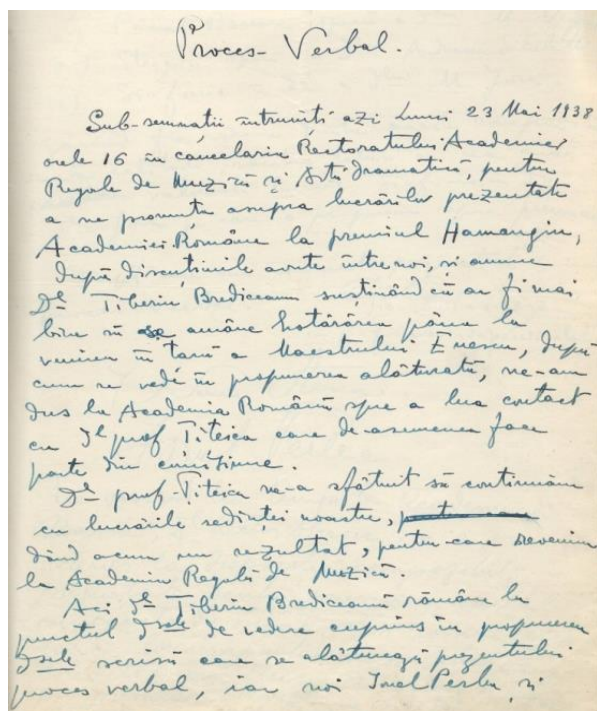 Proces-Verbal.
Sub-semnații întruniți azi Luni 23 Mai 1938
orele 16 în cancelaria Rectoratului Academiei
Regale de Muzică și Artă dramatică, pentru
a ne pronunța asupra lucrărilor prezentate
Academiei Române la premiul Hamangiu,
după discuțiunile avute între noi, și anume
Dl Tiberiu Brediceanu susținând că ar fi mai
bine să se amâne hotărârea până la
venirea în țară a Maestrului Enescu, după
cum se vede în propunerea alăturată, ne-am
dus la Academia Română spre a lua contact
cu Dl prof Țițeica care de-asemenea face
parte din comisiune.
Dl prof. Țițeica ne-a sfătuit să continuăm
cu lucrările ședinței noastre,
dând acum un rezultat, pentru-care revenim
la Academia Regală de Muzică.
Aci dl Tiberiu Brediceanu rămâne la
punctul dsale de vedere cuprins în propunerea
dsale scrisă care se alăturează prezentului
proces verbal, iar noi Ionel Perlea, și